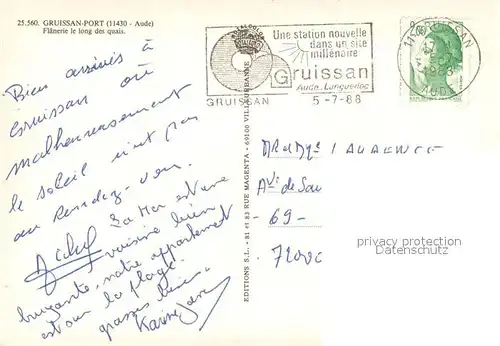 25.560. GRUISSAN-PORT (11430 - Aude)
Flânerie le long des quais.
Bien arrivés à
Gruissan où
malheureusement
le soleil n'est pas
au rendez-vous.
La Mer est une
voisine bien
bruyante, notre appartement
est sur la plage.
grosses bises
Karine
EDITIONS S.L. - 81 et 83 RUE MAGENTA - 69100 VILLEURBANNE
GRUISSAN
Une station nouvelle
dans un site
millénaire
Gruissan
Aude_Languedoc
5-7-88
11 GRUISSAN
1988
AUDE
Av. de
- 69 -
privacy protection
Datenschutz